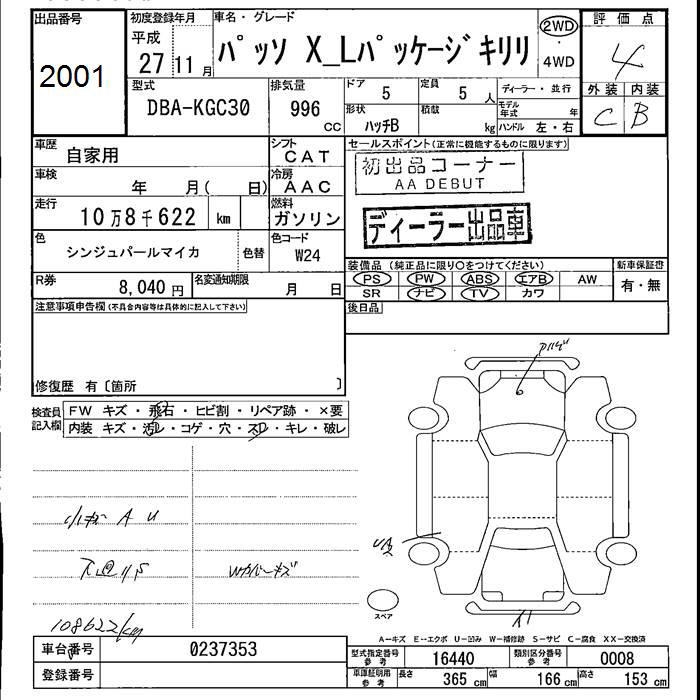 出品番号
2001
初度登録年月
平成
27 11月
車名・グレード
パッソ X_Lパッケージキリリ
2WD
・
4WD
評価点
4
外装 内装
C B
型式
DBA-KGC30
排気量
996
CC
ドア
5
定員
5 人
形状
ハッチB
積載
kg
ディーラー・並行
モデル年式 年
ハンドル 左・右
車歴
自家用
シフト
CAT
車検
年 月( 日)
冷房
AAC
走行
10万8千622 km
燃料
ガソリン
色
シンジュパールマイカ
色替
色コード
W24
R券
8,040 円
名変通知期限
月 日
セールスポイント(正常に機能するものに限ります)
初出品コーナー
AA DEBUT
ディーラー出品車
装備品(純正品に限り○をつけてください)
PS PW ABS エアB AW
SR ナビ TV カワ
新車保証書
有・無
後日品
注意事項申告欄(不具合内容等は具体的に記入して下さい)
修復歴 有〔箇所 〕
検査員記入欄
FW キズ・飛石・ヒビ割・リペア跡・×要
内装 キズ・汚レ・コゲ・穴・スレ・キレ・破レ
A U
Wカバーキズ
108622km
スペア
A-キズ E-エクボ U-凹み W-補修跡 S-サビ C-腐食 XX-交換済
車台番号
0237353
登録番号
型式指定番号
参考
16440
類別区分番号
参考
0008
車庫証明用
参考
長さ 365 cm 幅 166 cm 高さ 153 cm